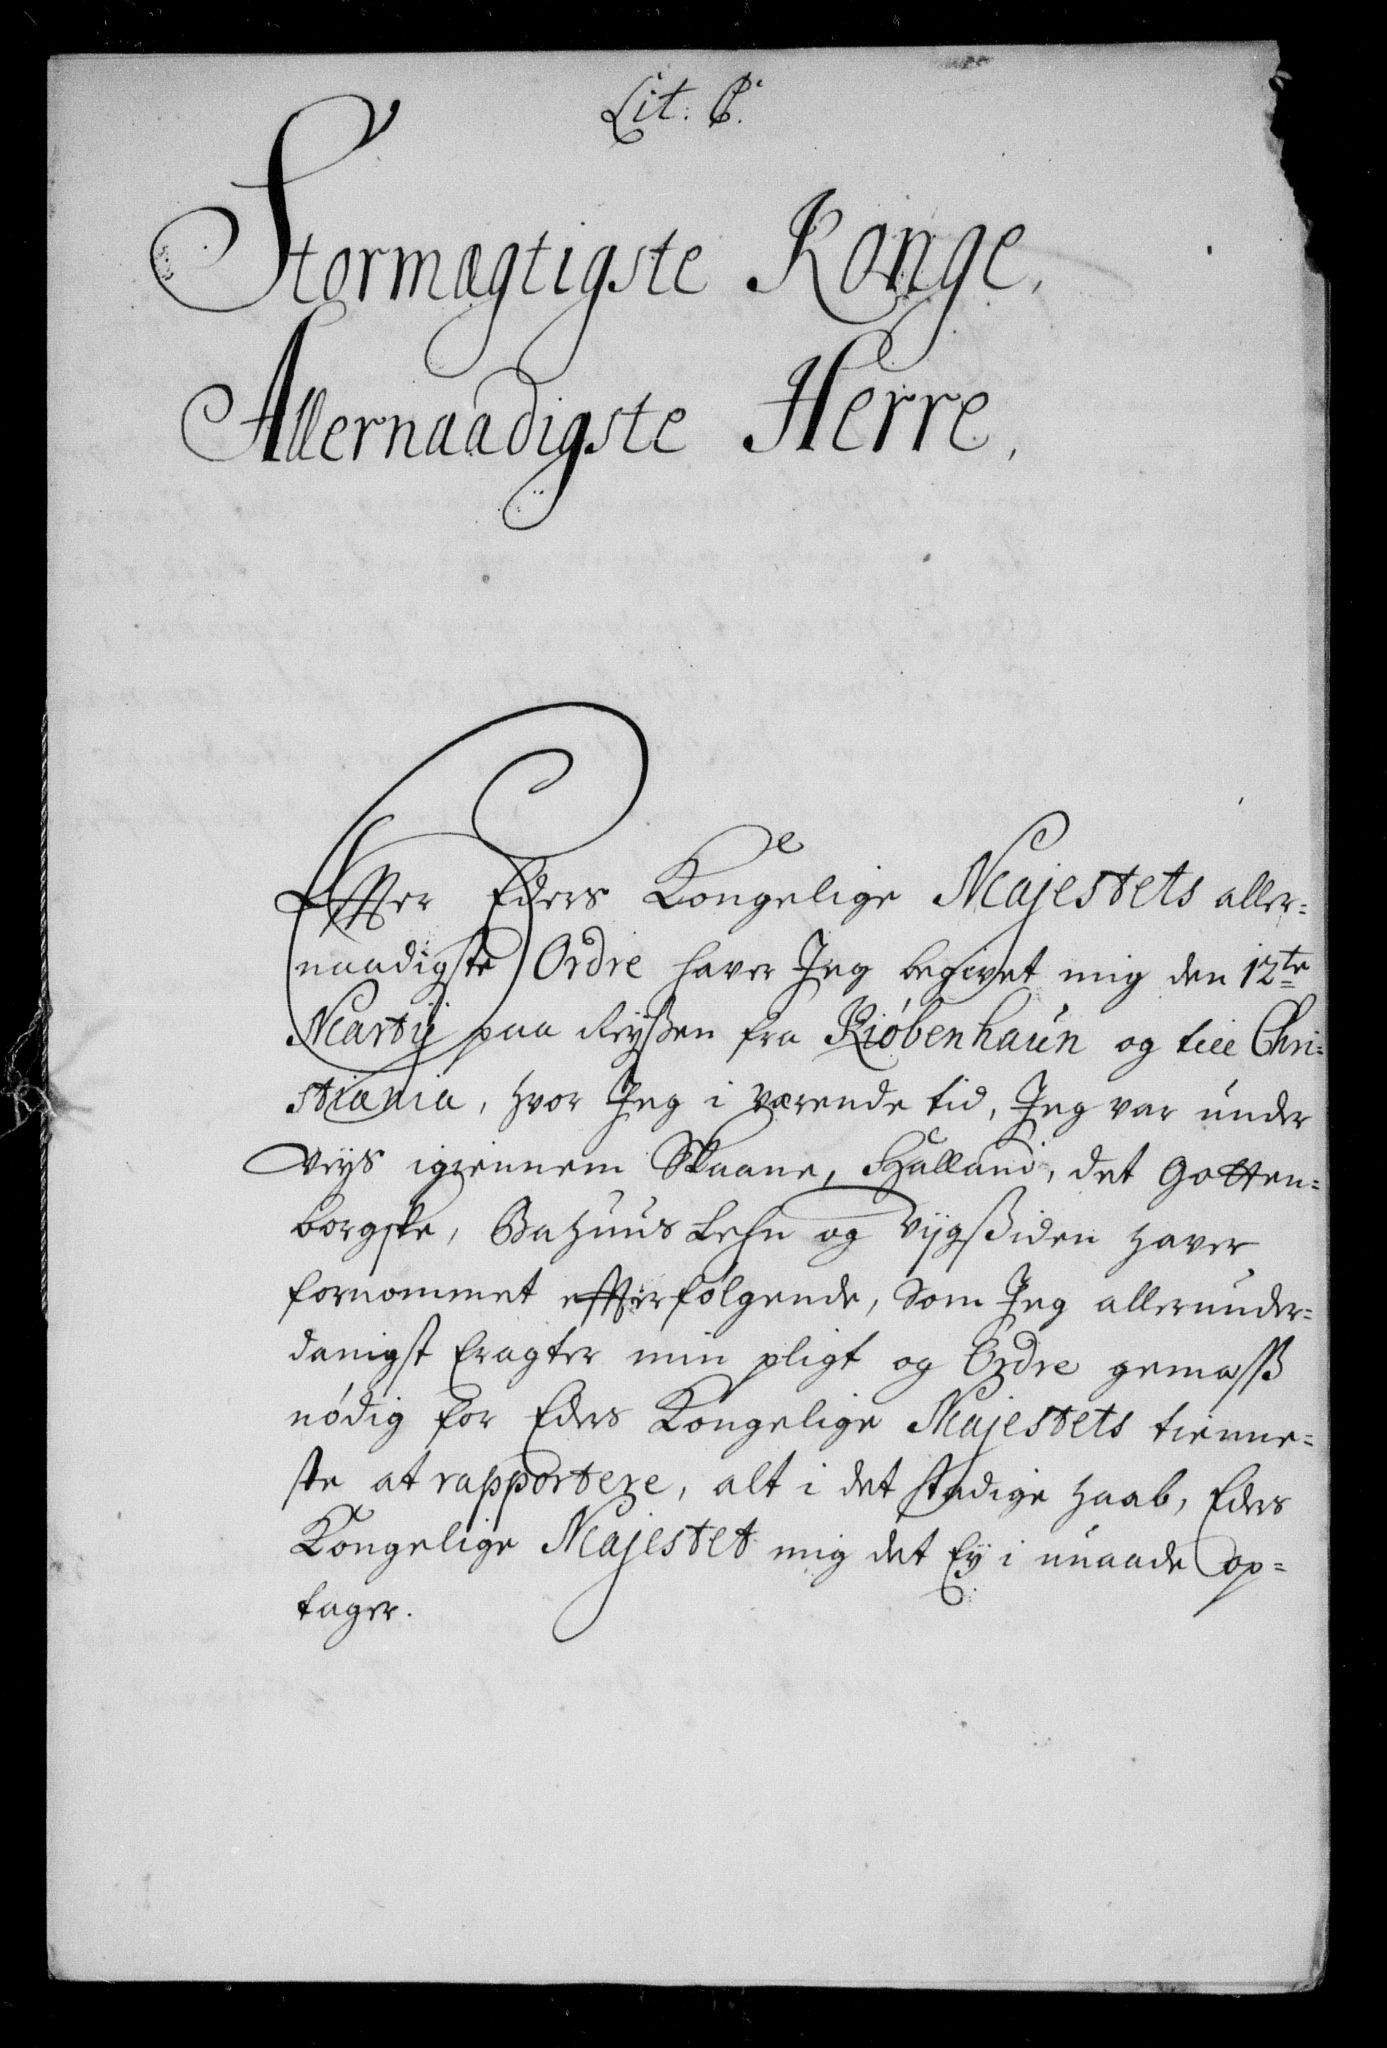 Lit: C.
Stormægtigste Konge,
Allernaadigste Herre,
Effter Eders Kongelige Majestets aller=
naadigste Ordre haver Jeg begivet mig den 12te
Martij paa Reyßen fra Kiøbenhaun og till Chri=
stiania, hvor Jeg i værende tid, Jeg var under
veys igiennem Skaane, Halland, det Gotten=
borgske, Bahuus Lehn og Viygßiden haver
fornommet effterfølgende, som Jeg allerunder=
danigst Eragter min pligt og Ordre gemæss
nødig for Eders Kongelige Majestets tienne=
ste at rapportere, alt i det stadige haab, Eders
Kongelige Majestet mig det Ey i unaade op=
tager.